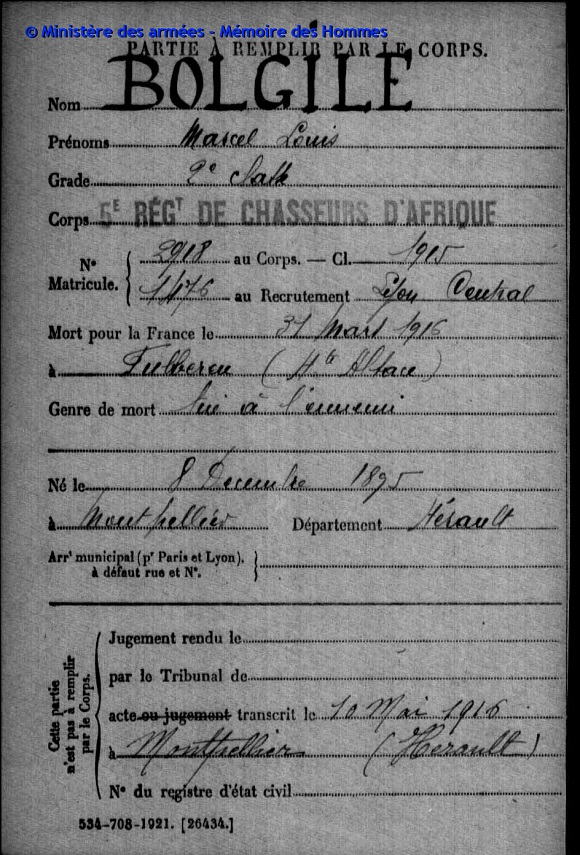 © Ministère des armées - Mémoire des Hommes
PARTIE À REMPLIR PAR LE CORPS.
Nom BOLGILE
Prénoms Marcel Louis
Grade 2e
Corps 5E RÉGT DE CHASSEURS D'AFRIQUE
N° Matricule. { 2918 au Corps. — Cl. 1915
1476 au Recrutement Lyon Central
Mort pour la France le 31 Mars 1916
à Fulleren (Hte Alsace)
Genre de mort tué à l'ennemi
Né le 8 Décembre 1895
à Montpellier Département Hérault
Arrt municipal (pr Paris et Lyon), à défaut rue et N°. }
Cette partie n'est pas à remplir par le Corps. {
Jugement rendu le
par le Tribunal de
acte ou jugement transcrit le 10 Mai 1916
à Montpellier (Hérault)
N° du registre d'état civil
534-708-1921. [26434.]